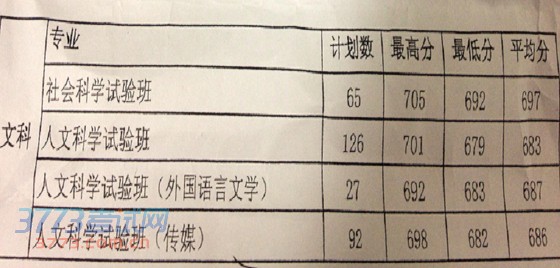 专业 计划数 最高分 最低分 平均分
文科
社会科学试验班 65 705 692 697
人文科学试验班 126 701 679 683
人文科学试验班（外国语言文学） 27 692 683 687
3773考试网
人文科学试验班（传媒） 92 698 682 686